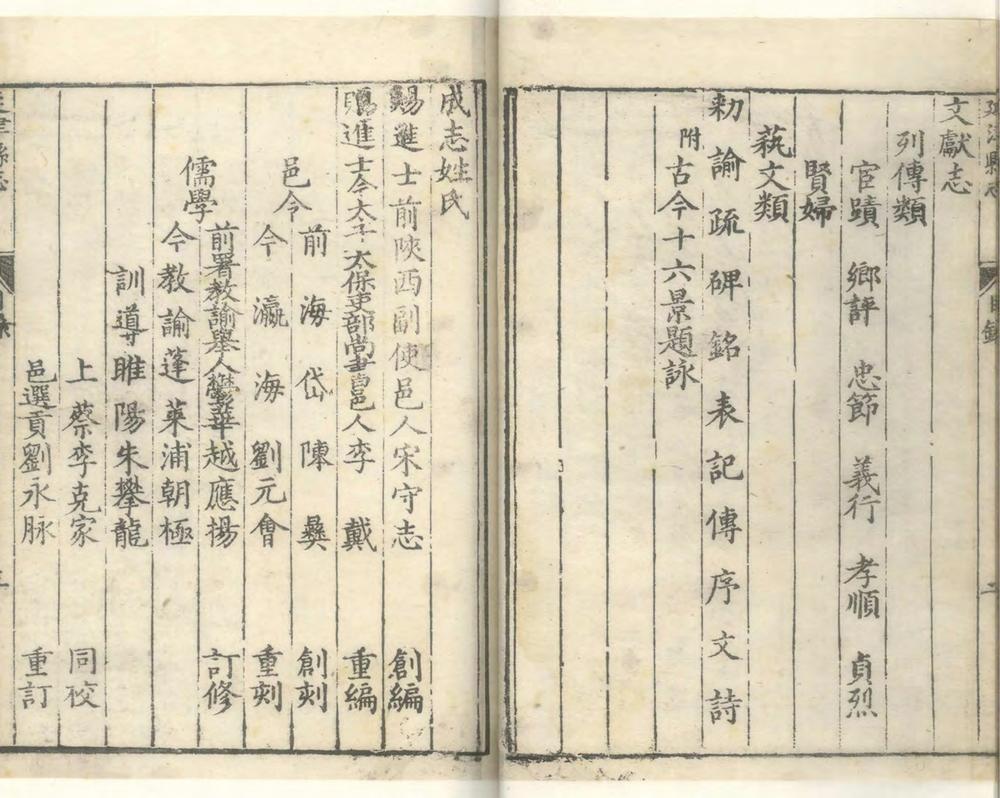 文獻志
列傳類
宦蹟 鄉評 忠節 義行 孝順 貞烈
賢婦
蓺文類
勑諭疏碑銘表記傳序文詩
附古今十六景題詠
成志姓氏
賜進士前陝西副使邑人宋守志 創編
賜進士今太子太保吏部尚書邑人李戴 重編
邑令
前海岱陳彝 創刻
今瀛海劉元會 重刻
儒學
前署教諭舉人越應揚 訂修
今教諭蓬萊浦朝極
訓導睢陽朱攀龍
上蔡李克家 同校
邑選貢劉永脉 重訂